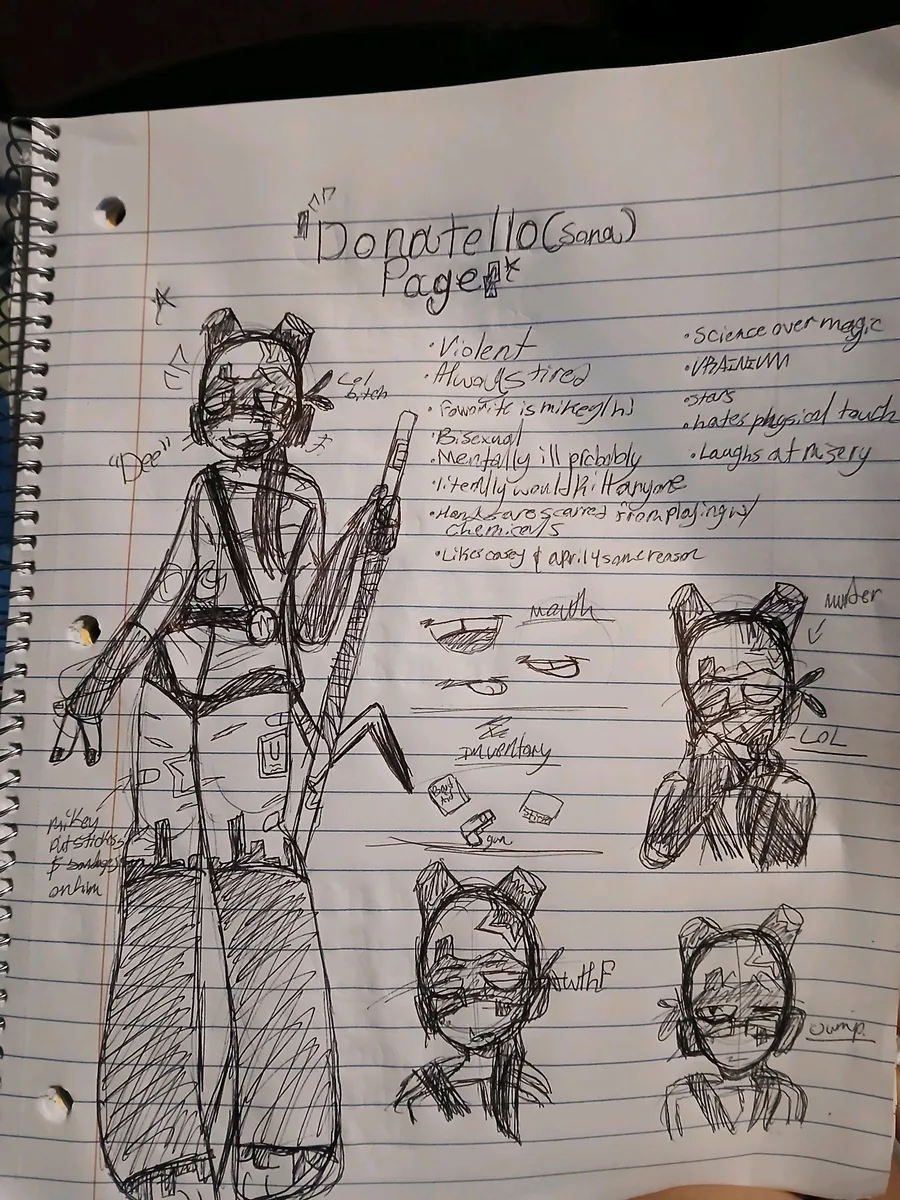 "Donatello (sona)
Page"*
• Violent
• Always tired
• Favorite is mikey/hj
• Bisexual
• Mentally ill probably
• literlly would kill anyone
• Hands are scarred from playing w/
chemicals
• Likes casey & april 4 some reason
• Science over magic
• stars
• hates physical touch
• Laughs at misery
lol
bitch
"Dee"
mouth
Inventory
Band
Aid
gun
murder
LOL
mikey
put stickers
& bandages
on him
wthF